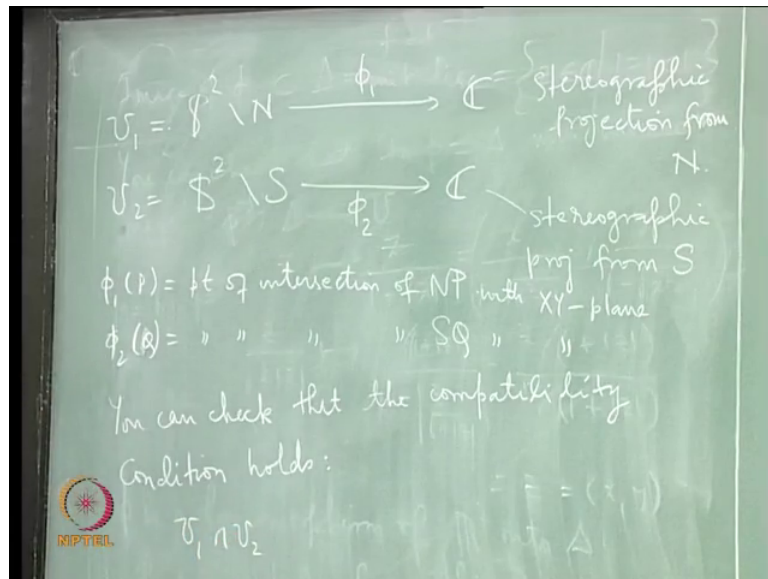 U₁ = $² \ N —ϕ₁→ ℂ stereographic
projection from
N.
U₂ = $² \ S —ϕ₂→ ℂ stereographic
proj from S
ϕ₁(P) = pt of intersection of NP with XY-plane
ϕ₂(Q) = " " " " SQ " "
You can check that the compatibility
Condition holds:
U₁ ∩ U₂
NPTEL